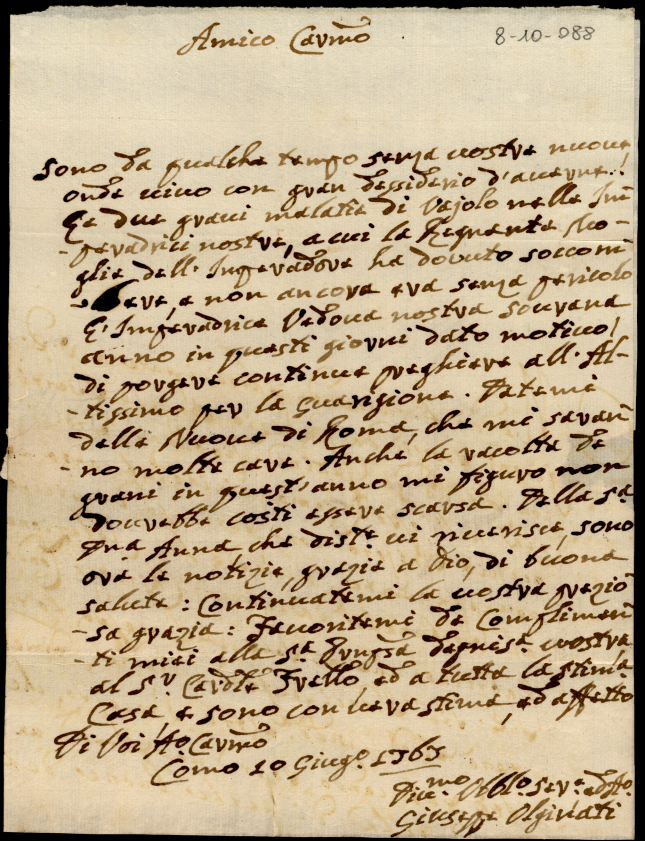 8-10-088
Amico Car.mo
Sono da qualche tempo senza vostre nuove
onde vivo con gran dessiderio d'averne!
Le due gravi malatie di Vajolo nelle Im-
-peradrici nostre, a cui la Regnante Mo-
-glie dell'Imperadore ha dovuto soccom-
-bere, e non ancora era senza pericolo
l'Imperadrice Vedova nostra Sovrana
anno in questi giorni dato motivo
di porgere continue preghiere all'Al-
-tissimo per la Guarigione. Datemi
delle Nuove di Roma, che mi saran-
-no molte care. Anche la racolta de
grani in quest'anno mi figuro non
dovrebbe costì essere scarsa. Della S.a
D.na Anna che dist.e vi riverisce, sono
ora le notizie, grazie a Dio, di buona
salute: Continuatemi la vostra prezio-
-sa grazia: Favoritemi de Complimen-
-ti miei alla S.a degniss.a vostra
al S.r Cavd.le Fretto ed a tutta la stim.a
Casa, e sono con vera stima, ed affetto
Di Voi, A.o Car.mo
Como 10 Giug.o 1767
Div.mo Obblo. Ser.e ed A.o
Giuseppe Olginati